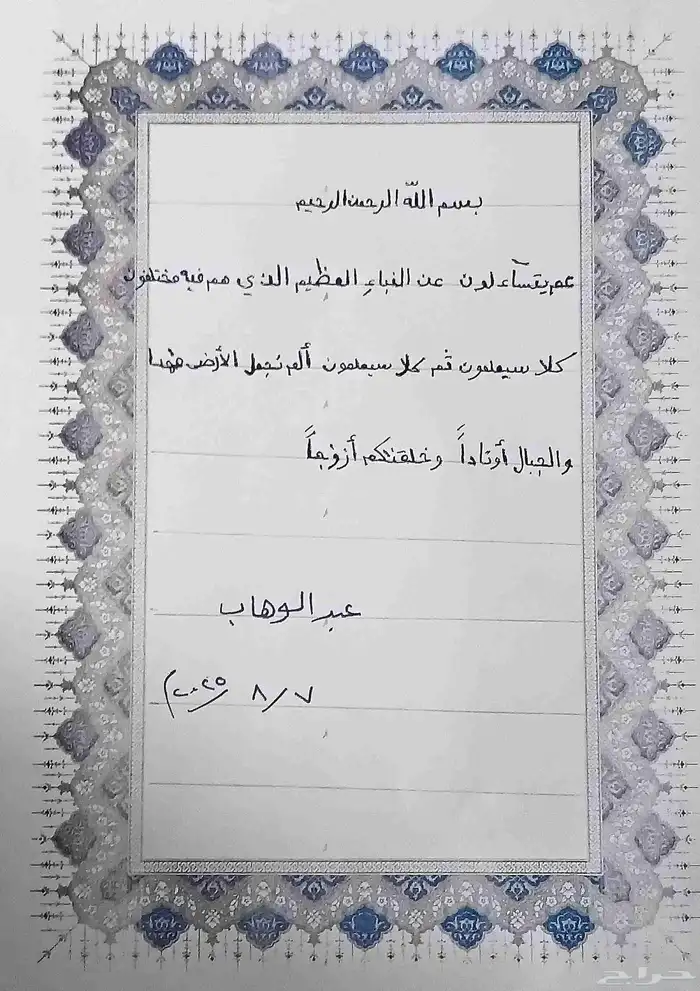 بسم اللّه الرحمن الرحيم
عم يتسآءلون عن النباءِ العظيم الذي هم فيه مختلفون
كلا سيعلمون ثم كلا سيعلمون ألم نجعل الأرض مهدا
والجبال أوتاداً وخلقنكم أزوجاً
عبد الوهاب
٧ / ٨ / ٢٠٢٥م
حراج